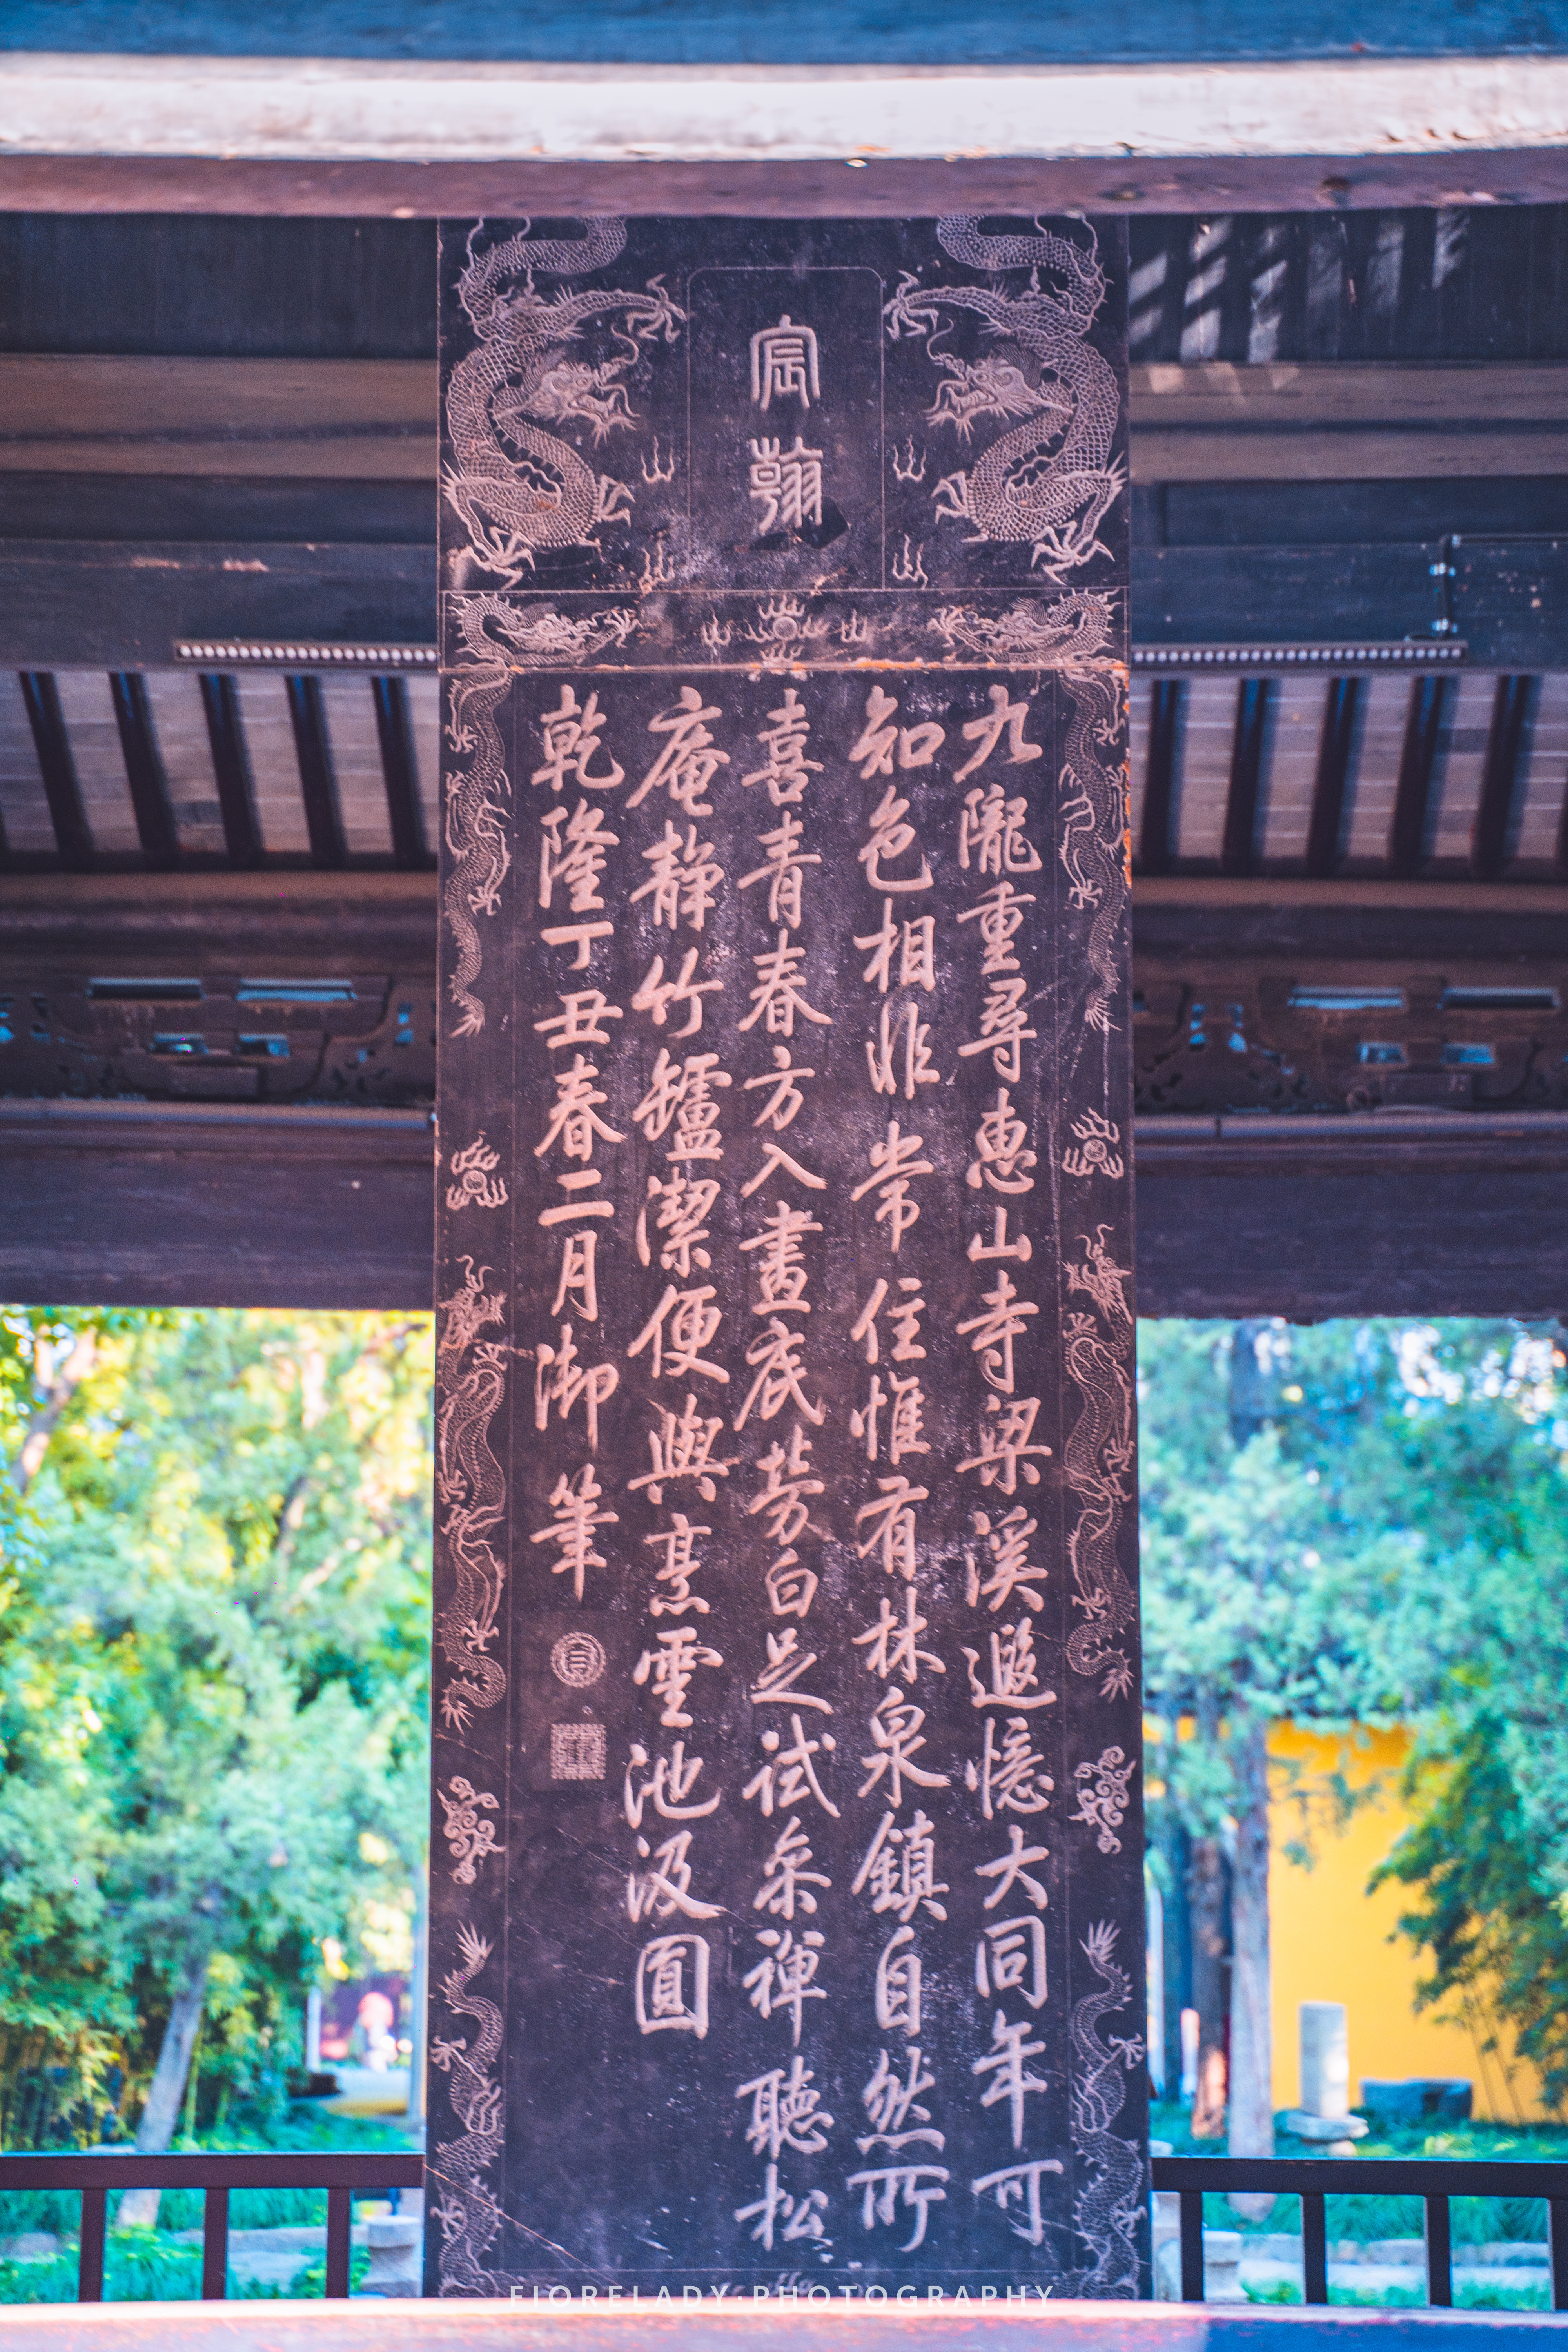 宸翰
九隴重尋惠山寺梁溪遐憶大同年可
知色相非常住惟有林泉鎮自然所
喜青春方入畫底勞白足試參禪聽松
庵靜竹罏潔便與烹雲池汲圓
乾隆丁丑春二月御筆
FIORELADY·PHOTOGRAPHY